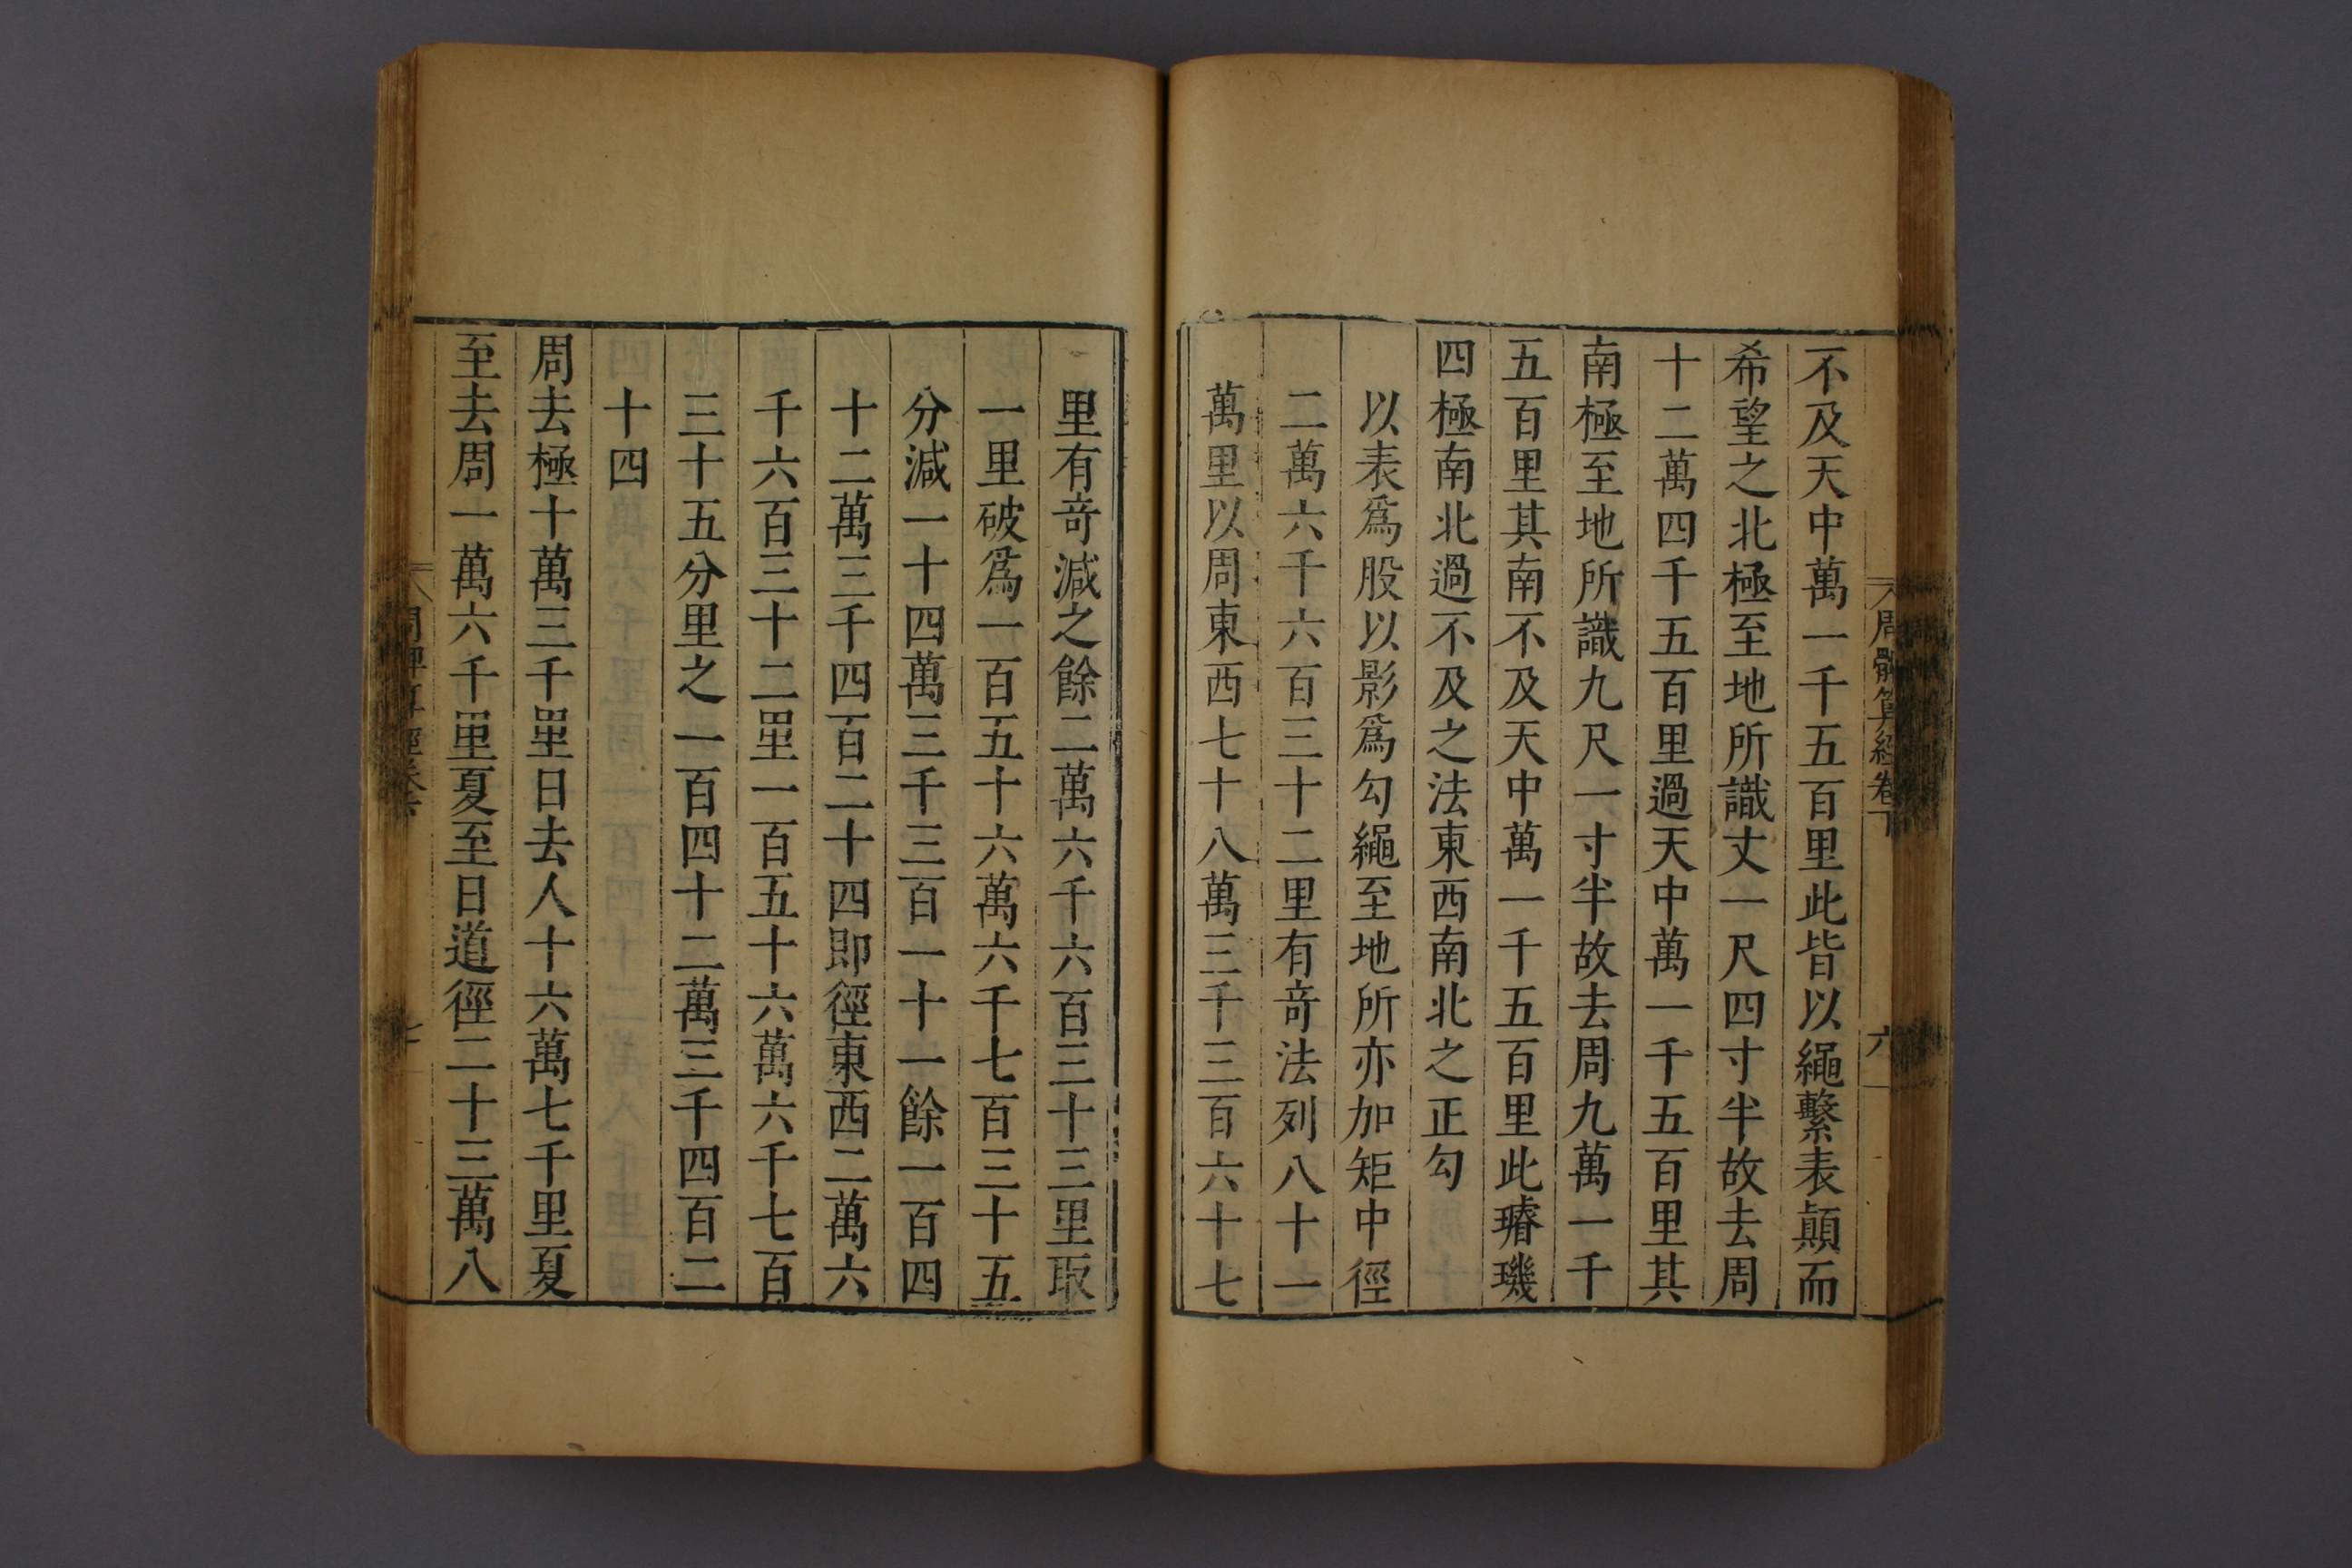 周髀算經卷下
六
不及天中萬一千五百里此皆以繩繫表顛而
希望之北極至地所識丈一尺四寸半故去周
十二萬四千五百里過天中萬一千五百里其
南極至地所識九尺一寸半故去周九萬一千
五百里其南不及天中萬一千五百里此璿璣
四極南北過不及之法東西南北之正勾
以表爲股以影爲勾繩至地所亦加矩中徑
二萬六千六百三十二里有竒法列八十一
萬里以周東西七十八萬三千三百六十七
里有竒減之餘二萬六千六百三十三里取
一里破爲一百五十六萬六千七百三十五
分減一十四萬三千三百一十一餘一百四
十二萬三千四百二十四即徑東西二萬六
千六百三十二里一百五十六萬六千七百
三十五分里之一百四十二萬三千四百二
十四
周去極十萬三千里日去人十六萬七千里夏
至去周一萬六千里夏至日道徑二十三萬八
周髀算經卷下
七